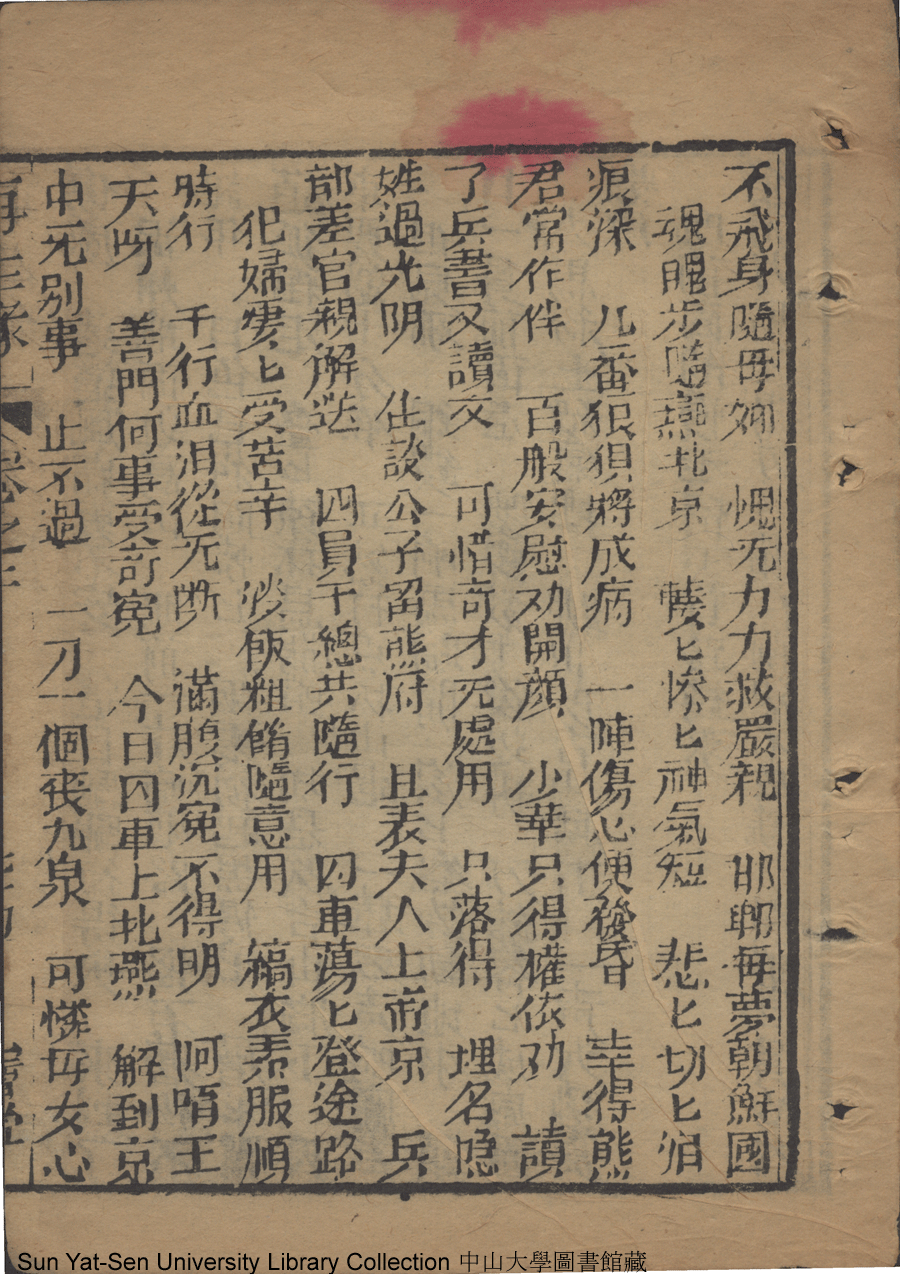 不飛身隨母姊　愧无力力救嚴親　邯鄲每夢朝鮮國
魂魄步隨燕北京　悽匕慘匕神氣短　悲匕切匕泪
痕深　几番狠狽將成病　一陣傷心便發昏　幸得熊
君常作伴　百般安慰劝開顔　少華只得權依劝　讀
了兵書又讀文　可惜奇才无處用　只落得　埋名隐
姓過光阴　住談公子留熊府　且表夫人上帝京　兵
部差官親解送　四員千總共隨行　囚車蕩匕登途路
犯婦妻匕受苦辛　淡飯粗餚隨意用　縞衣素服順
時行　千行血泪從无断　滿腹沉寃不得明　阿唷王
天吓　善門何事受奇寃　今日囚車上北燕　解到京
中无别事　止不過　一刀一個丧九泉　可憐母女心
再生緣　卷之三